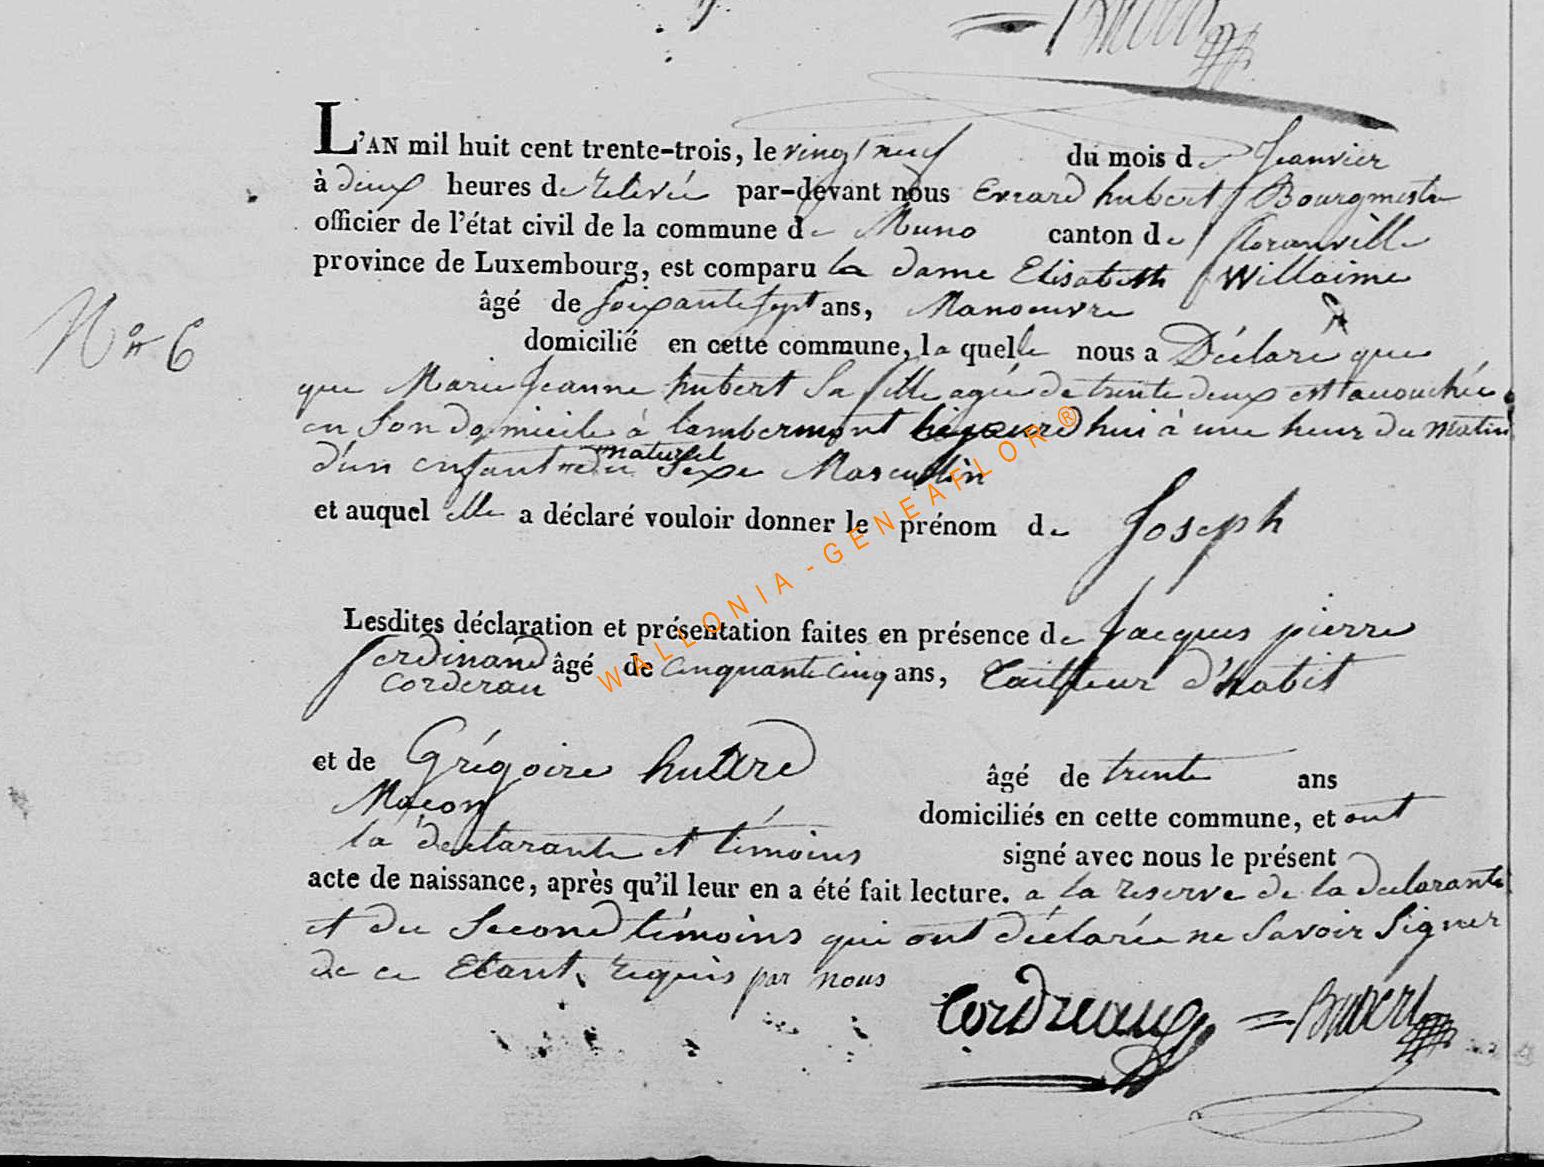 L'AN mil huit cent trente-trois, le vingt neuf du mois de Jeanvier
à deux heures de relevée par-devant nous Evrard hubert Bourgmestre
officier de l'état civil de la commune de Muno canton de floranville
province de Luxembourg, est comparu la dame Elisabeth Willaime
âgé de soixante sept ans, Manoeuvre
N° 6
domicilié en cette commune, la quelle nous a Déclaré que
que Marie Jeanne hubert sa fille agée de trente deux est accouchée
en son domicile à lambermont hui à une heur du matin
d'un enfant naturel du sexe Masculin
et auquel elle a déclaré vouloir donner le prénom de Joseph
Lesdites déclaration et présentation faites en présence de Jacques pierre
ferdinand âgé de cinquante cinq ans, tailleur d'habit
corderau
et de Grégoire âgé de trente ans
Maçon domiciliés en cette commune, et ont
la déclarante et témoins signé avec nous le présent
acte de naissance, après qu'il leur en a été fait lecture. a la reserve de la declarante
et du second témoins qui ont déclarée ne savoir signer
de ce Etant requis par nous
WALLONIA - GENEAFLOR ®